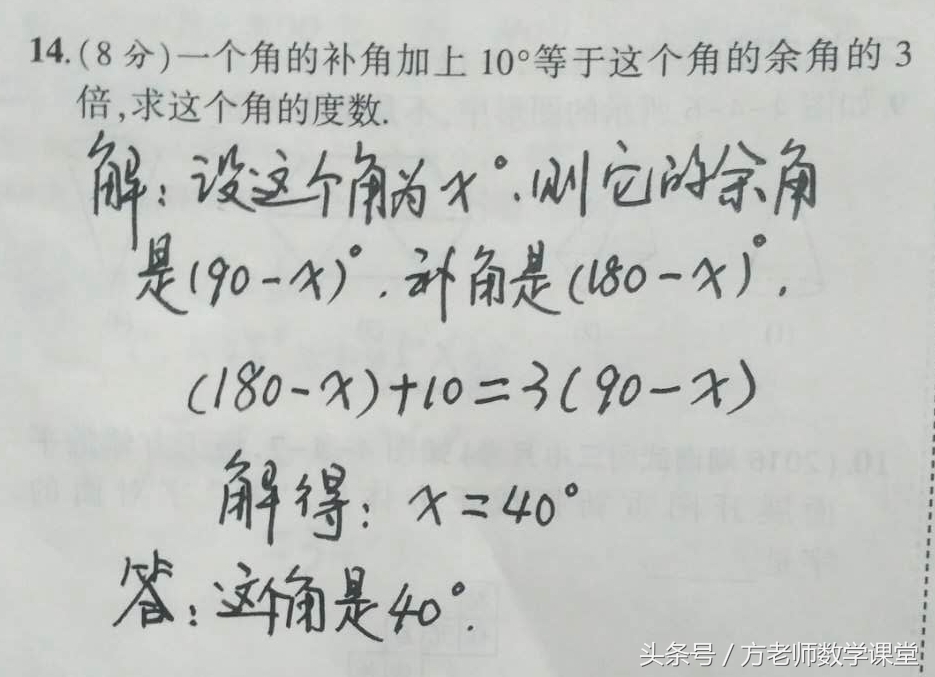 14.(8分)一个角的补角加上10°等于这个角的余角的3
倍,求这个角的度数.
解:设这个角为x°.则它的余角
是(90-x)°.补角是(180-x)°.
(180-x)+10=3(90-x)
解得:x=40°
答:这个角是40°.
头条号/方老师数学课堂